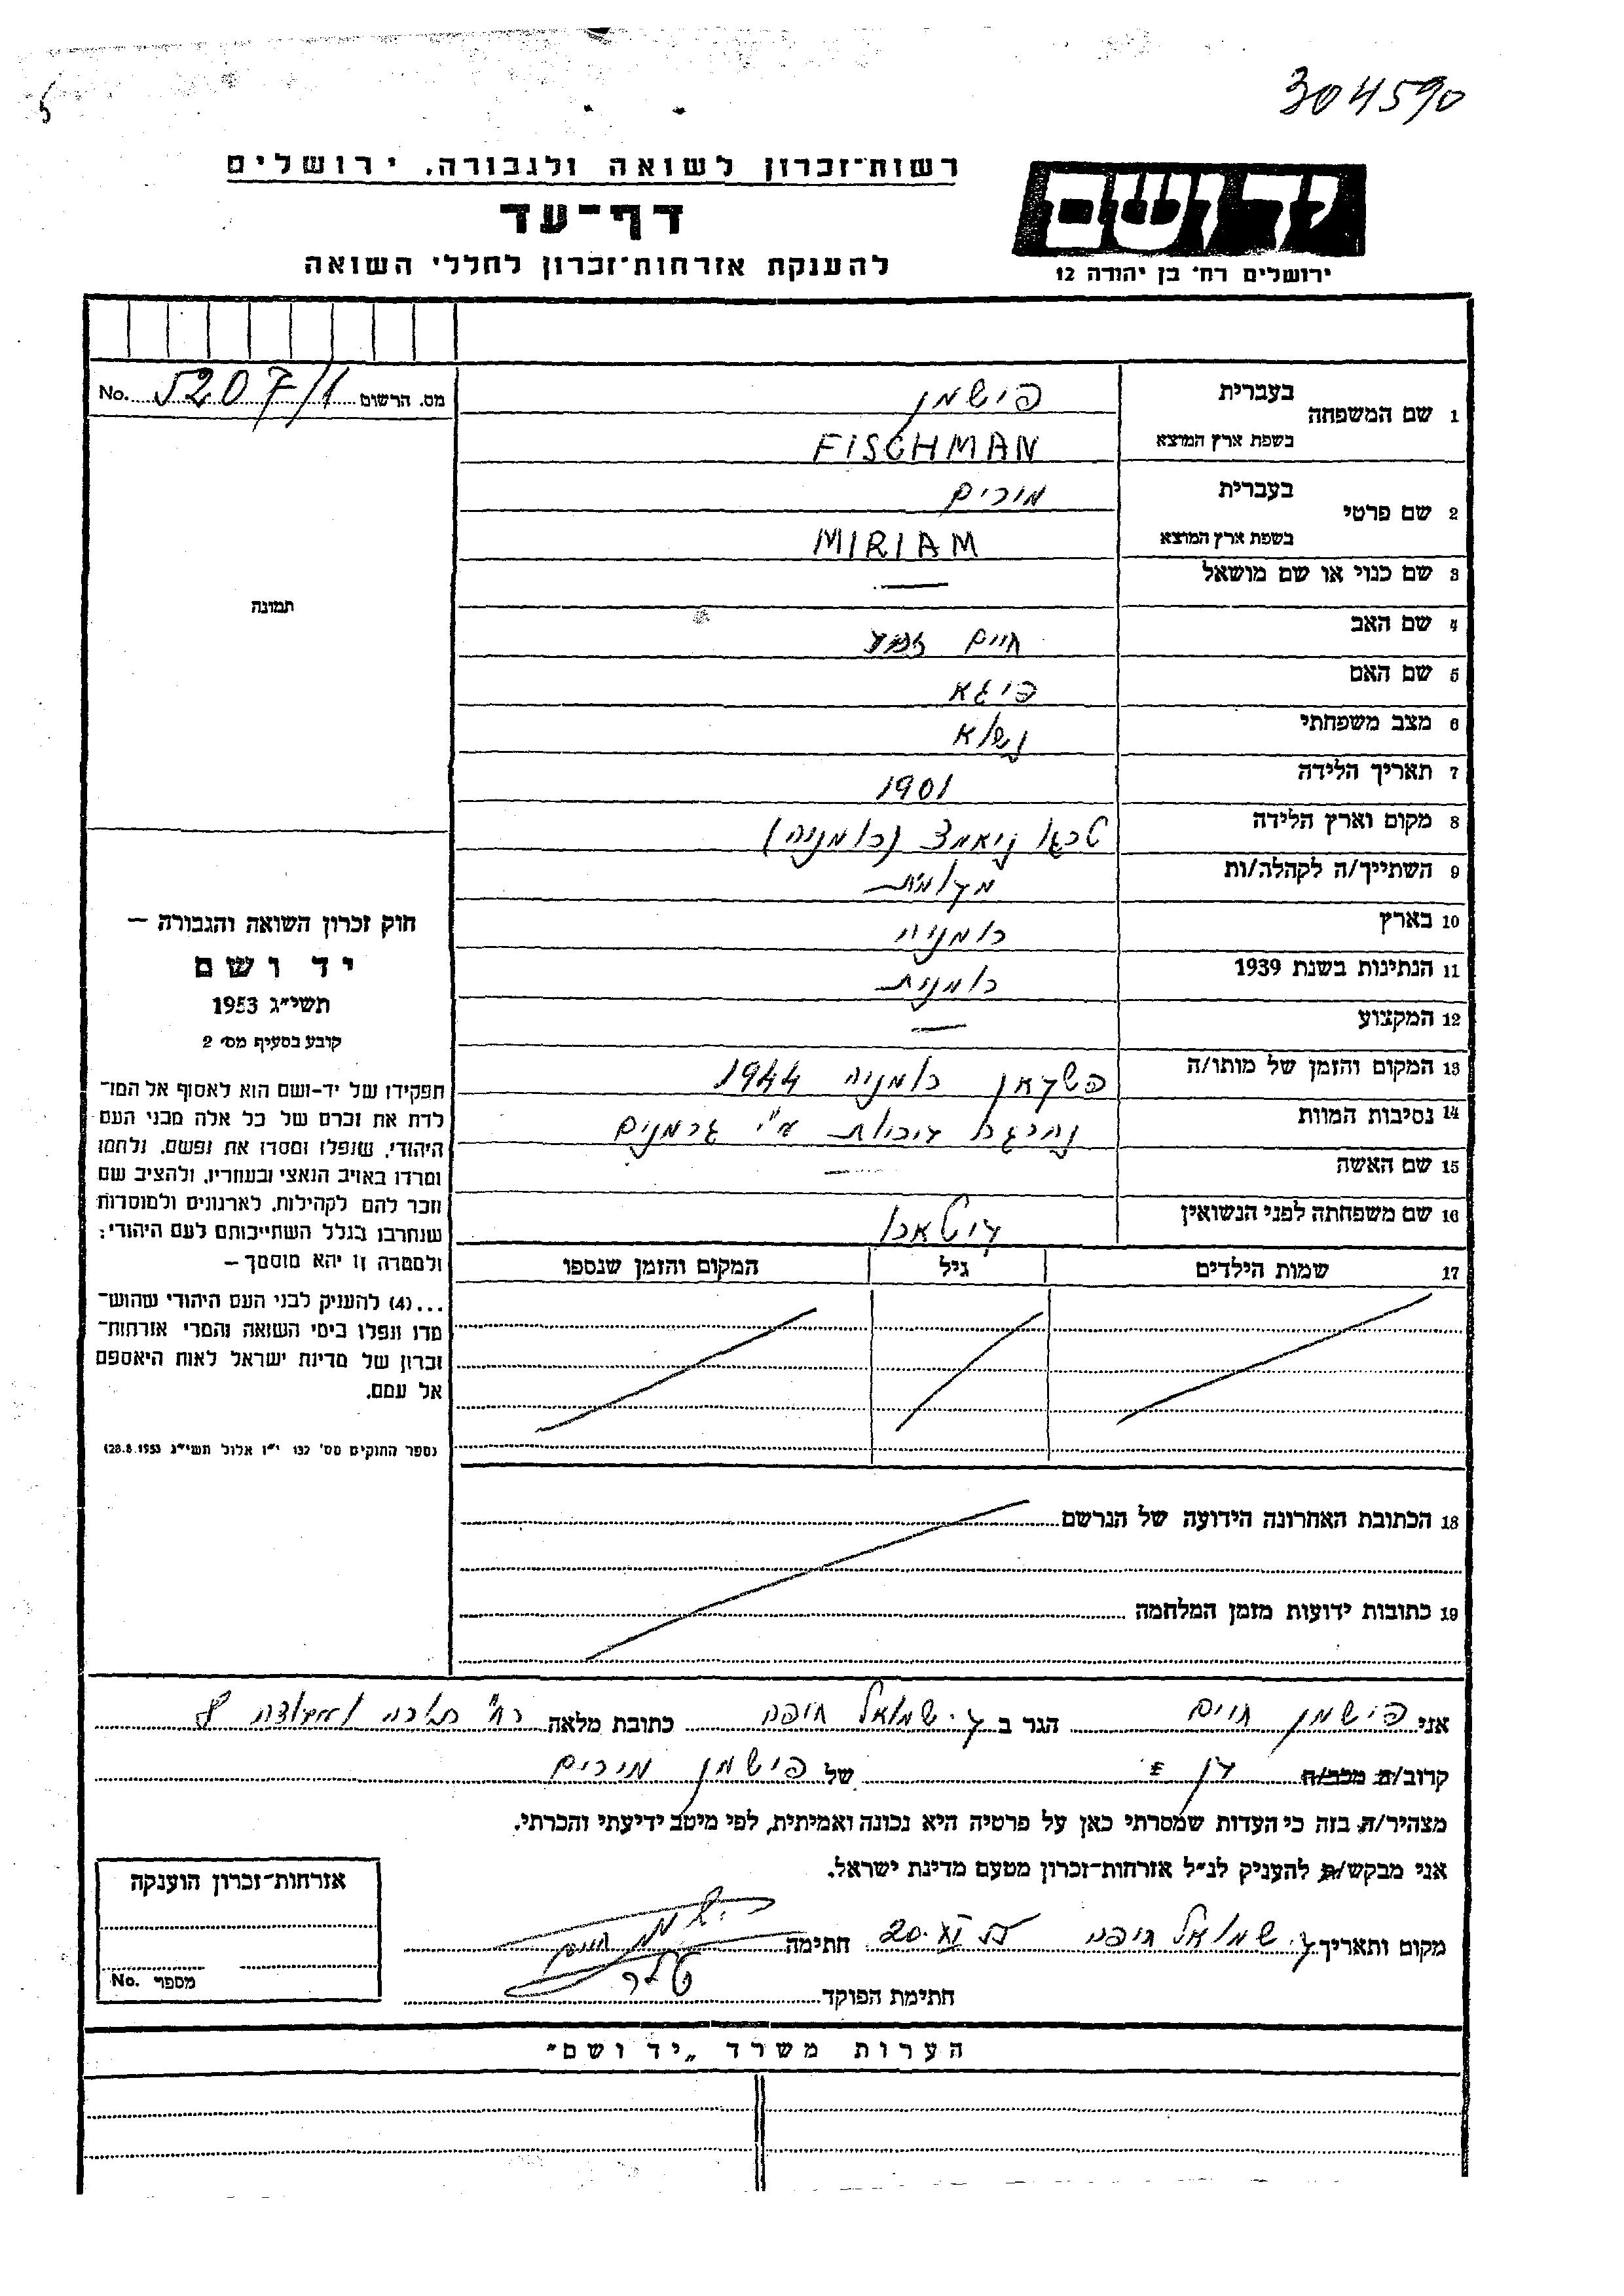 304590
רשות־זכרון לשואה ולגבורה, ירושלים
יד ושם
דף־עד
להענקת אזרחות־זכרון לחללי השואה
ירושלים רח' בן יהודה 12
מס. הרשום 5207/1 No.
1 שם המשפחה בעברית פישמן
בשפת ארץ המוצא FISCHMAN
2 שם פרטי בעברית מורים
בשפת ארץ המוצא MIRIAM
תמונה
3 שם כנוי או שם מושאל —
4 שם האב חיים
5 שם האם פיגא
6 מצב משפחתי
7 תאריך הלידה 1901
8 מקום וארץ הלידה טרגו ניאמצ (רומניה)
9 השתייך/ה לקהלה/ות
10 בארץ רומניה
11 הנתינות בשנת 1939 רומנית
12 המקצוע —
13 המקום והזמן של מותו/ה פשקאן רומניה 1944
14 נסיבות המוות ע"י גרמנים
15 שם האשה —
16 שם משפחתה לפני הנשואין
17 שמות הילדים גיל המקום והזמן שנספו
18 הכתובת האחרונה הידועה של הנרשם
19 כתובות ידועות מזמן המלחמה
חוק זכרון השואה והגבורה —
יד ושם
תשי״ג 1953
קובע בסעיף מס׳ 2
תפקידו של יד-ושם הוא לאסוף אל המו־
לדת את זכרם של כל אלה מבני העם
היהודי, שנפלו ומסרו את נפשם, נלחמו
ומרדו באויב הנאצי ובעוזריו, ולהציב שם
וזכר להם לקהילות, לארגונים ולמוסדות
שנחרבו בגלל השתייכותם לעם היהודי;
ולמטרה זו יהא מוסמך —
...(4) להעניק לבני העם היהודי שהוש־
מדו ונפלו בימי השואה והמרי אזרחות־
זכרון של מדינת ישראל לאות היאספם
אל עמם.
(ספר החוקים מס׳ 132 י״ז אלול תשי״ג 28.8.1953)
אני פישמן חיים הגר ב ק. שמואל חיפה כתובת מלאה רח'
קרוב/ת מכר/ה של פישמן מירים
מצהיר/ה בזה כי העדות שמסרתי כאן על פרטיה היא נכונה ואמיתית, לפי מיטב ידיעתי והכרתי.
אני מבקש/ת להעניק לנ״ל אזרחות־זכרון מטעם מדינת ישראל.
מקום ותאריך ק. שמואל חיפה 20.XI 55 חתימה פישמן חיים
חתימת הפוקד
אזרחות־זכרון הוענקה
מספר No.
הערות משרד „יד ושם"